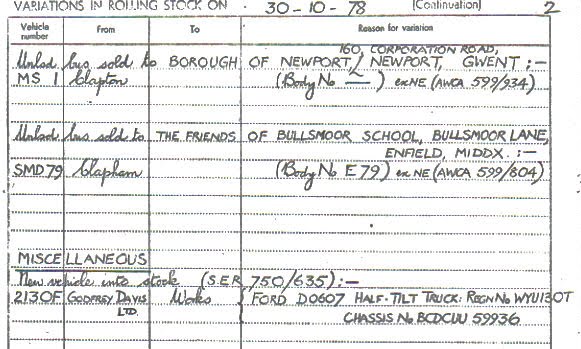 VARIATIONS IN ROLLING STOCK ON · 30-10-78 (Continuation) 2
Vehicle number From To Reason for variation
160, CORPORATION ROAD,
Unlsd bus sold to BOROUGH OF NEWPORT, NEWPORT, GWENT ;-
MS 1 Clapton (Body No — ) ex NE (AWCA 599/934)
Unlsd bus sold to THE FRIENDS OF BULLSMOOR SCHOOL, BULLSMOOR LANE,
ENFIELD, MIDDX. :-
SMD79 Clapham (Body No E79) ex NE (AWCA 599/804)
MISCELLANEOUS
New vehicle into stock (S.E.R. 750/635):-
2130F GODFREY DAVIS LTD. Works FORD D0607 HALF-TILT TRUCK. REGN No WYU130T
CHASSIS No BCDCUU 59936